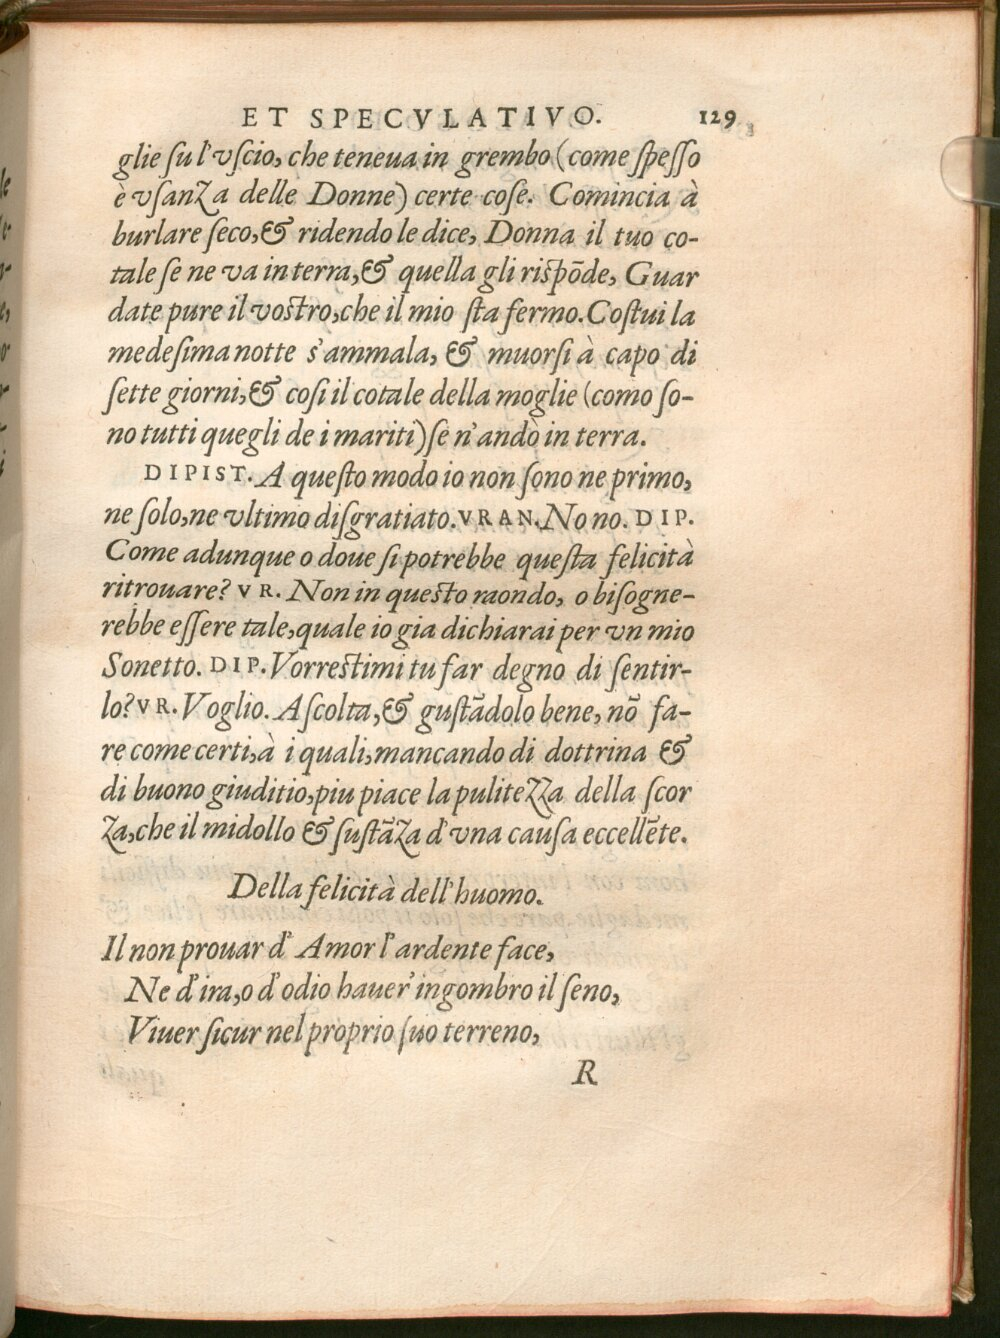 ET SPECVLATIVO. 129
glie ſu l'vſcio, che teneua in grembo (come ſpeſſo
è vſanza delle Donne) certe coſe. Comincia à
burlare ſeco, & ridendo le dice, Donna il tuo co-
tale ſe ne va in terra, & quella gli riſpōde, Guar
date pure il voſtro, che il mio ſta fermo. Coſtui la
medeſima notte s'ammala, & muorſi à capo di
ſette giorni, & coſi il cotale della moglie (como ſo-
no tutti quegli de i mariti) ſe n'andò in terra.
DIPIST. A queſto modo io non ſono ne primo,
ne ſolo, ne vltimo diſgratiato. VRAN. No no. DIP.
Come adunque o doue ſi potrebbe queſta felicità
ritrouare? VR. Non in queſto raondo, o biſogne-
rebbe eſſere tale, quale io gia dichiarai per vn mio
Sonetto. DIP. Vorreſtimi tu far degno di ſentir-
lo? VR. Voglio. Aſcolta, & guſtādolo bene, nō fa-
re come certi, à i quali, mancando di dottrina &
di buono giuditio, piu piace la pulitezza della ſcor
za, che il midollo & ſuſtāza d'vna cauſa eccellēte.
Della felicità dell'huomo.
Il non prouar d'Amor l'ardente face,
Ne d'ira, o d'odio hauer'ingombro il ſeno,
Viuer ſicur nel proprio ſuo terreno,
R